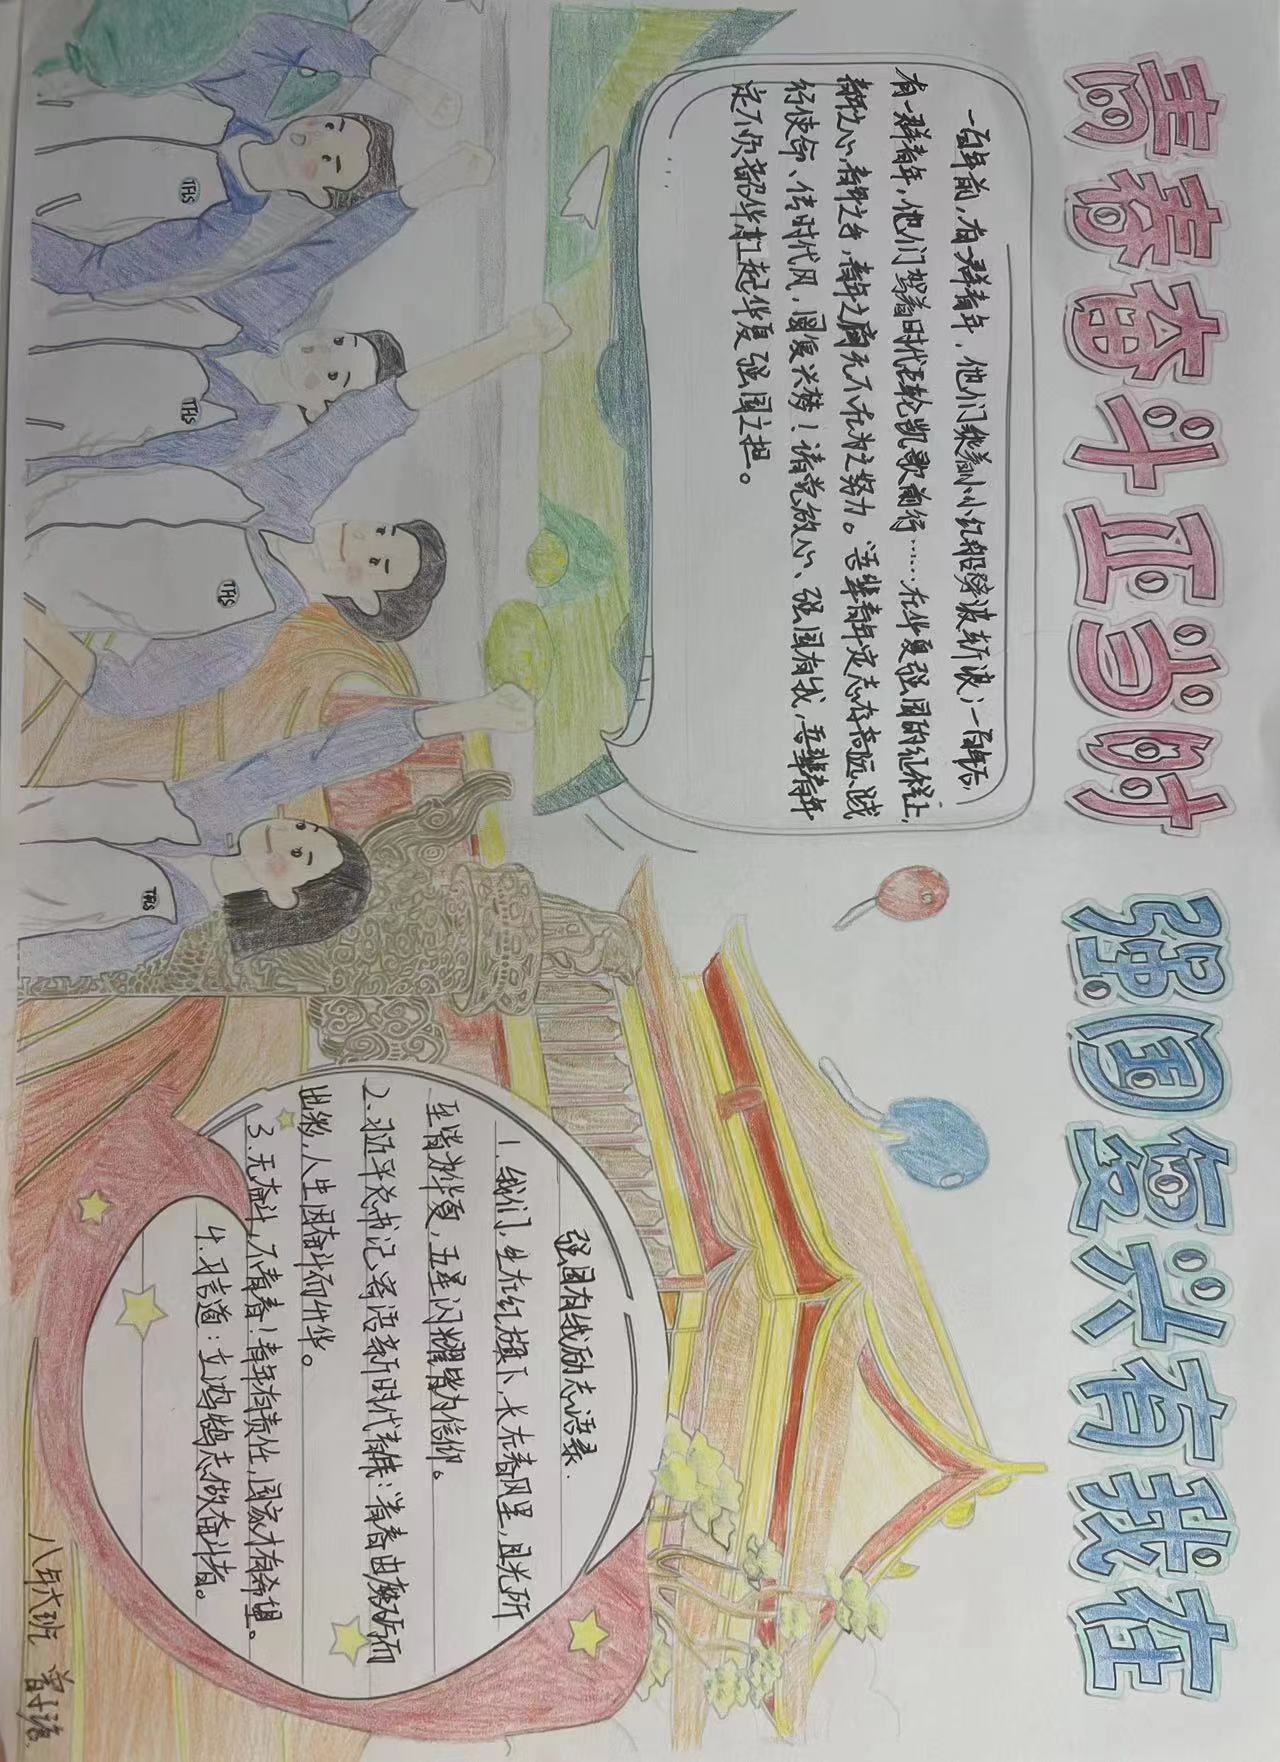 青春奋斗正当时
强国复兴有我在
一百年前,有一群青年,他们乘着小小红船劈波斩浪;一百年后,
有一群青年,他们驾着时代巨轮凯歌前行……在华夏强国的征程上,
青年之心,青年之力,青年之魂无不在为之努力。“吾辈青年定志存高远、践
行使命、传时代风,圆复兴梦!请党放心、强国有我,吾辈青年
定不负韶华,扛起华夏强国之担。
......
TFLS
TFLS
TFLS
TFLS
强国有我励志语录.
1.我们,生在红旗下,长在春风里,目光所
至皆为华夏,五星闪耀皆为信仰。
2.习近平总书记寄语新时代青年:青春由磨砺而
出彩,人生因奋斗而升华。
3.无奋斗,不青春!青年有责任,国家才有希望。
4.习言道:立鸿鹄志做奋斗者。
八年六班 曾子